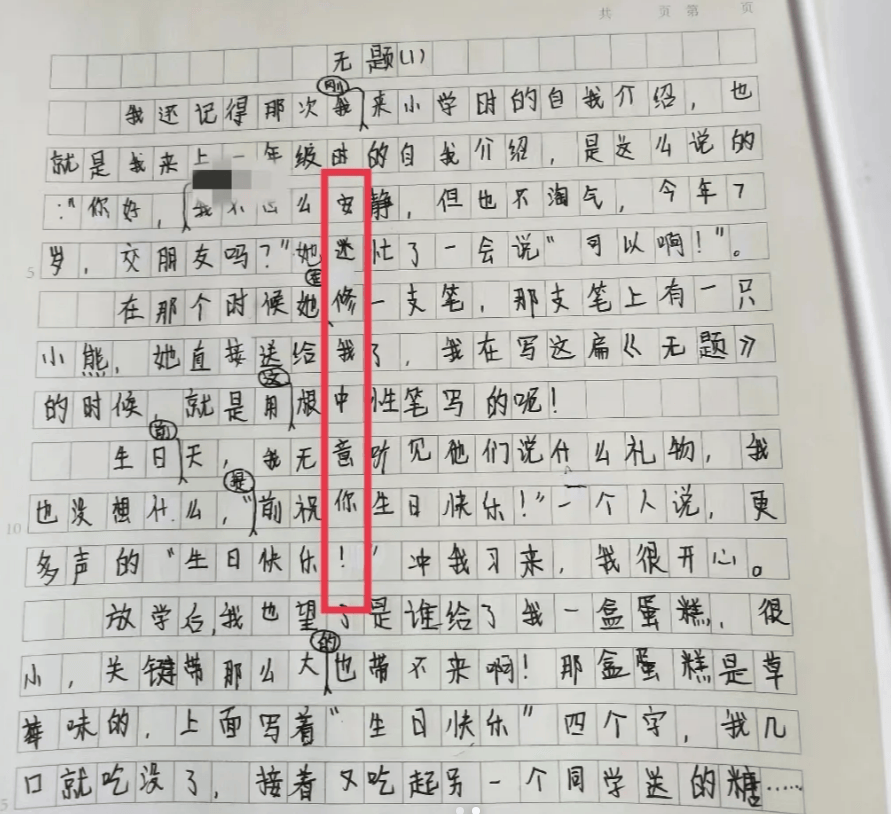 共 页 第 页
无题(1)
我还记得那次刚我来小学时的自我介绍，也
就是我来上一年级时的自我介绍，是这么说的
："你好，我不怎么安静，但也不淘气，今年7
岁，交朋友吗？"她迷忙了一会说"可以啊！"。
5
在那个时候她在修一支笔，那支笔上有一只
小熊，她直接送给我了，我在写这扁《无题》
的时候，就是用这根中性笔写的呃！
生日前天，我无意听见他们说什么礼物，我
也没想什么，"是前祝你生日快乐！"一个人说，更
10
多声的"生日快乐！"冲我习来，我很开心。
放学后，我也望了是谁给了我一盒蛋糕，很
小，关键带那么大的也带不来啊！那盒蛋糕是草
莓味的，上面写着"生日快乐"四个字，我几
口就吃没了，接着又吃起另一个同学送的糖……
5